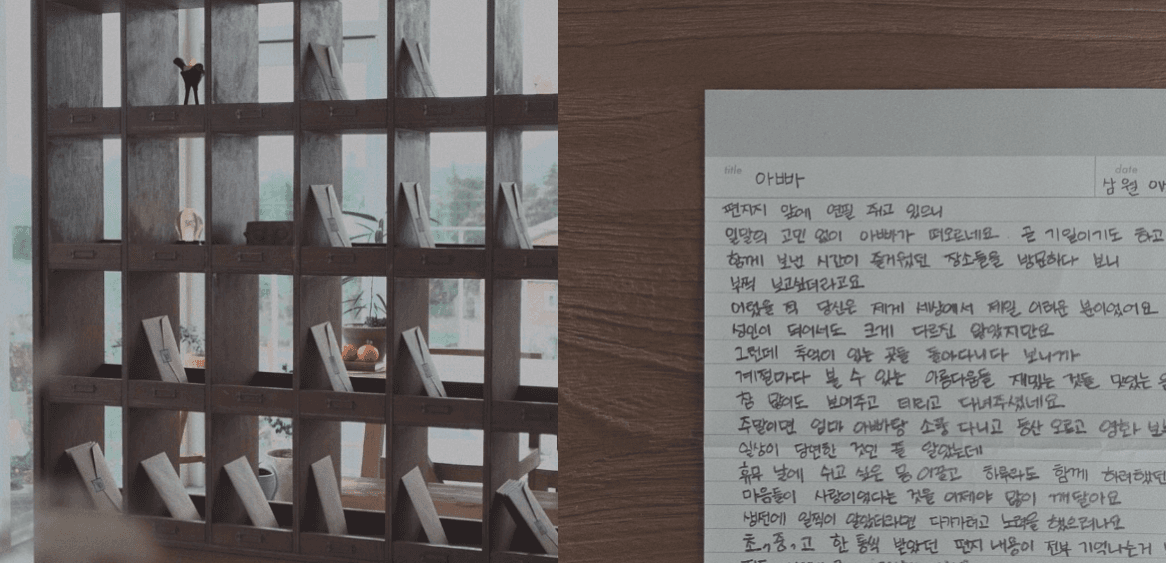 title 아빠 date
삼월
편지지 앞에 연필 쥐고 있으니
일말의 고민 없이 아빠가 떠오르네요. 곧 기일이기도 하고
함께 보낸 시간이 즐거웠던 장소들을 방문하다 보니
부쩍 보고싶더라고요
어렸을 적 당신은 제게 세상에서 제일 어려운 분이었어요
성인이 되어서도 크게 다르진 않았지만요
그런데 추억이 있는 곳들 돌아다니다 보니까
계절마다 볼 수 있는 아름다운들 재밌는 것들 맛있는
참 많이도 보여주고 데리고 다녀주셨네요
주말이면 엄마 아빠랑 소풍 다니고 등산 오르고 영화
일상이 당연한 것인 줄 알았는데
휴무 날에 쉬고 싶은 몸 이끌고 하루라도 함께 하려했던
마음들이 사랑이었다는 것을 이제야 많이 깨달아요
생전에 일찍이 알았더라면 다가가려고 노력을 했으려나요
초,중,고 한 통씩 받았던 편지 내용이 전부 기억나는거